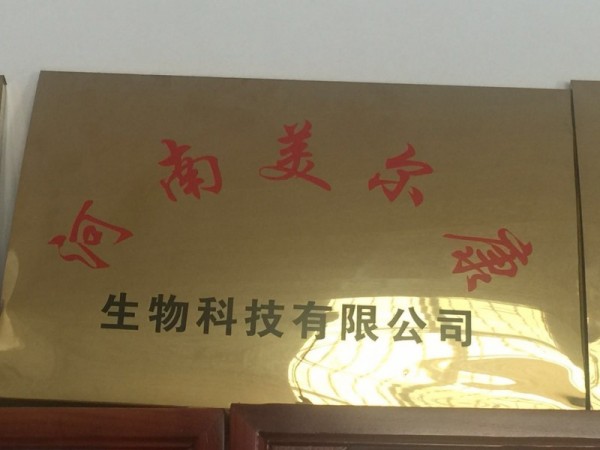 河南美尔康
生物科技有限公司